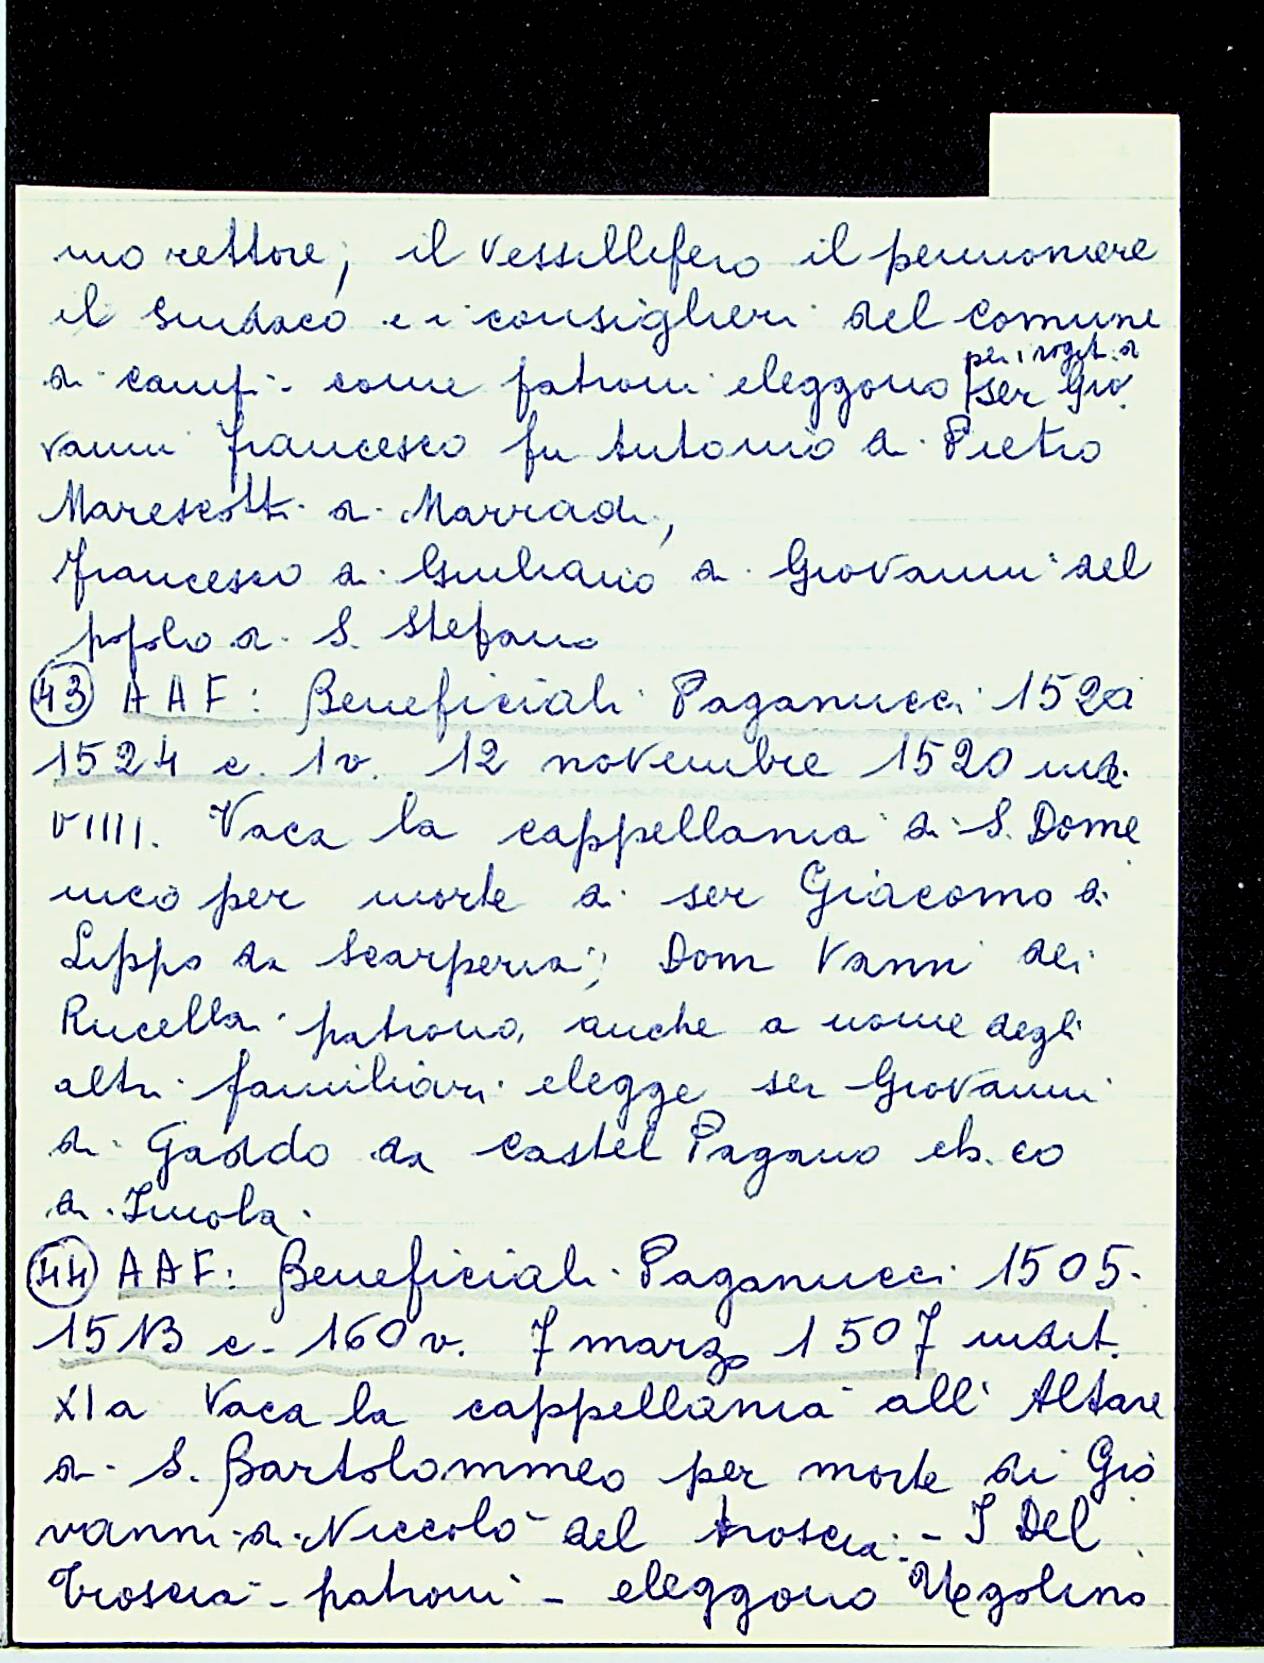 mo rettore; il vessillifero il pennoniere
il sindaco e i consiglieri del comune
di Campi - come patroni eleggono per i rogiti di ser Gio
vanni Francesco fu Antonio di Pietro
Marescotti di Marradi,
Francesco di Giuliano di Giovanni del
popolo di S. Stefano
43 AAF: Beneficiali Paganucci 1520
1524 c. 1v. 12 novembre 1520 ind.
VIIII. Vaca la cappellania di S. Dome
nico per morte di ser Giacomo di
Lippo da Scarperia; Dom Vanni dei
Rucellai patrono, anche a nome degli
altri familiari elegge ser Giovanni
di Gaddo da Castel Pagano
di Imola.
44 AAF: Beneficiali Paganucci 1505-
1513 c. 160v. 7 marzo 1507 indit.
XIa Vaca la cappellania all' Altare
di S. Bartolommeo per morte di Gio
vanni di Niccolò del Troscia - I Del
Troscia - patroni - eleggono Ugolino